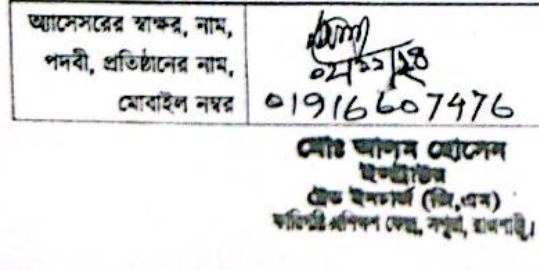 অ্যাসেসরের স্বাক্ষর, নাম,
পদবী, প্রতিষ্ঠানের নাম,
মোবাইল নম্বর
01916607476
মোঃ আলম হোসেন
ইন্সট্রাক্টর
ট্রেড ইনচার্জ (জি,এম)
কারিগরি প্রশিক্ষণ কেন্দ্র, রাজশাহী।